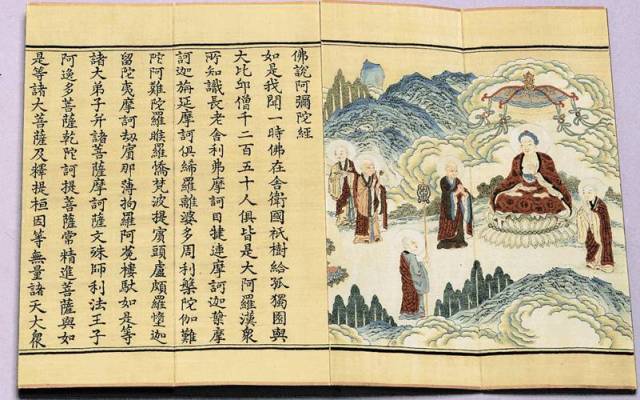 佛說阿彌陀經
如是我聞一時佛在舍衛國祇樹給孤獨園與
大比邱僧千二百五十人俱皆是大阿羅漢衆
所知識長老舍利弗摩訶目揵連摩訶迦葉摩
訶迦旃延摩訶俱絺羅離婆多周利槃陀伽難
陀阿難陀羅睺羅憍梵波提賓頭盧頗羅墮迦
留陀夷摩訶劫賓那薄拘羅阿㝹樓馱如是等
諸大弟子并諸菩薩摩訶薩文殊師利法王子
阿逸多菩薩乾陀訶提菩薩常精進菩薩與如
是等諸大菩薩及釋提桓因等無量諸天大衆